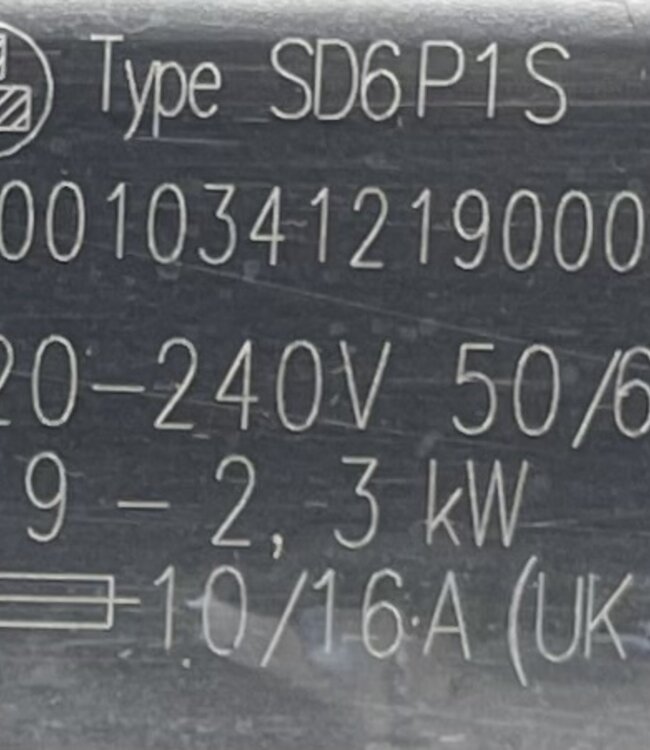 Type SD6P1S
001034121900​0
20-240V 50/6
9-2,3 kW
10/16 A (UK